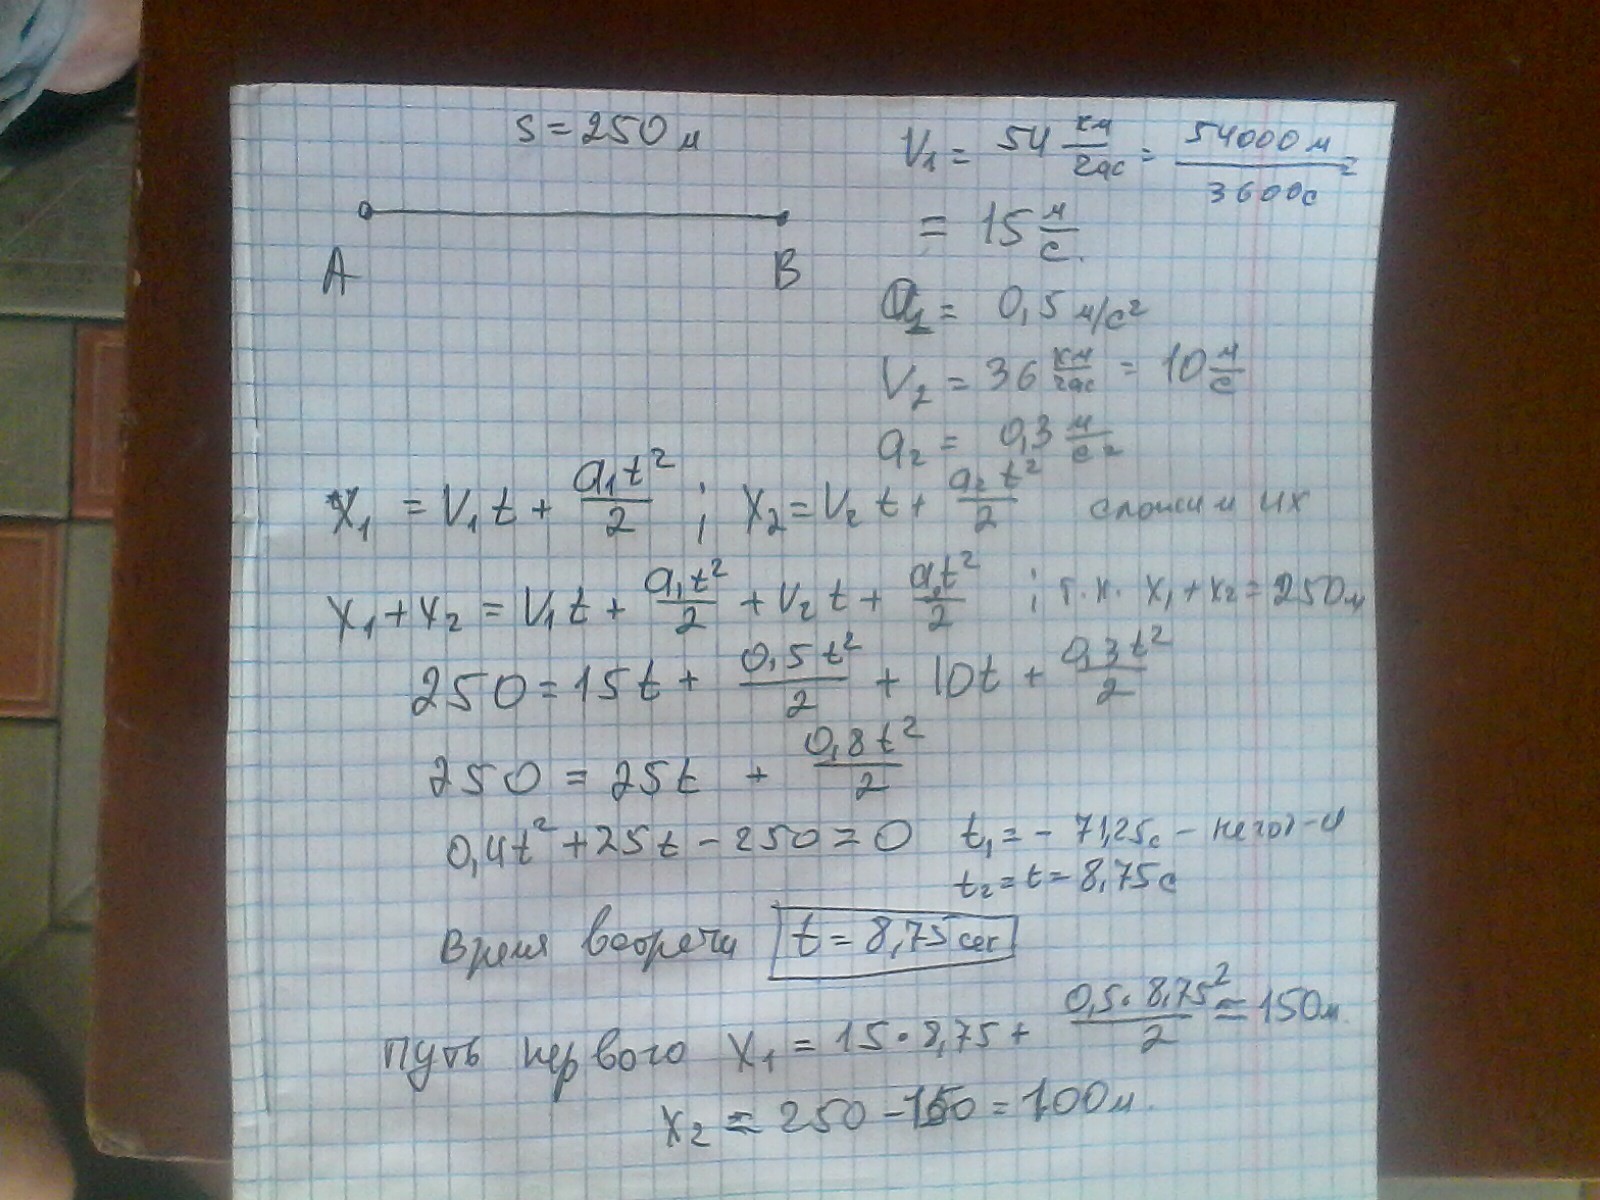 S = 250 м
V₁ = 54 км/час = 54000 м / 3600 с =
= 15 м/с.
A B
a₁ = 0,5 м/с²
V₂ = 36 км/час = 10 м/с
a₂ = 0,3 м/с²
X₁ = V₁t + a₁t²/2 ; X₂ = V₂t + a₂t²/2 сложим их
X₁ + X₂ = V₁t + a₁t²/2 + V₂t + a₂t²/2 ; т.к. X₁ + X₂ = 250м
250 = 15t + 0,5t²/2 + 10t + 0,3t²/2
250 = 25t + 0,8t²/2
0,4t² + 25t - 250 = 0 t₁ = - 71,25с - не год-и
t₂ = t = 8,75с
Время встречи t = 8,75 сек
Путь первого X₁ = 15 · 8,75 + 0,5 · 8,75²/2 ≈ 150м.
X₂ = 250 - 150 = 100м.